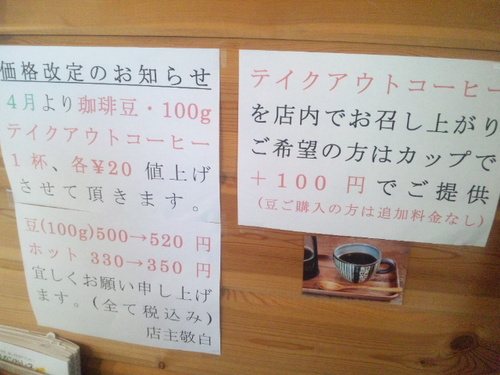 価格改定のお知らせ
4月より珈琲豆・100g
テイクアウトコーヒー
1杯、各¥20 値上げ
させて頂きます。
豆(100g)500→520 円
ホット 330→350 円
宜しくお願い申し上げ
ます。(全て税込み)
店主敬白
テイクアウトコーヒー
を店内でお召し上がり
ご希望の方はカップで
＋100 円でご提供
(豆ご購入の方は追加料金なし)